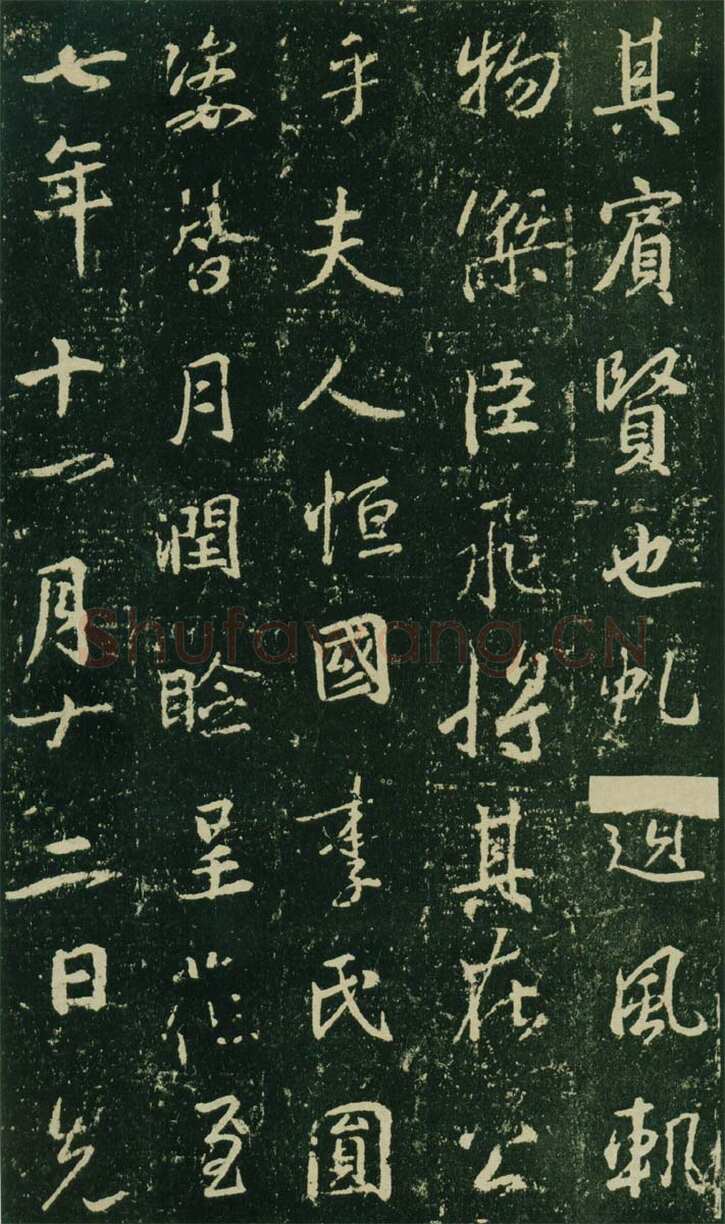 其賓賢也虬風軌
物傑臣飛將其在公
乎夫人恒國李氏圓
姿替月潤瞼呈花至
七年十一月十二日先
Shufawang.CN